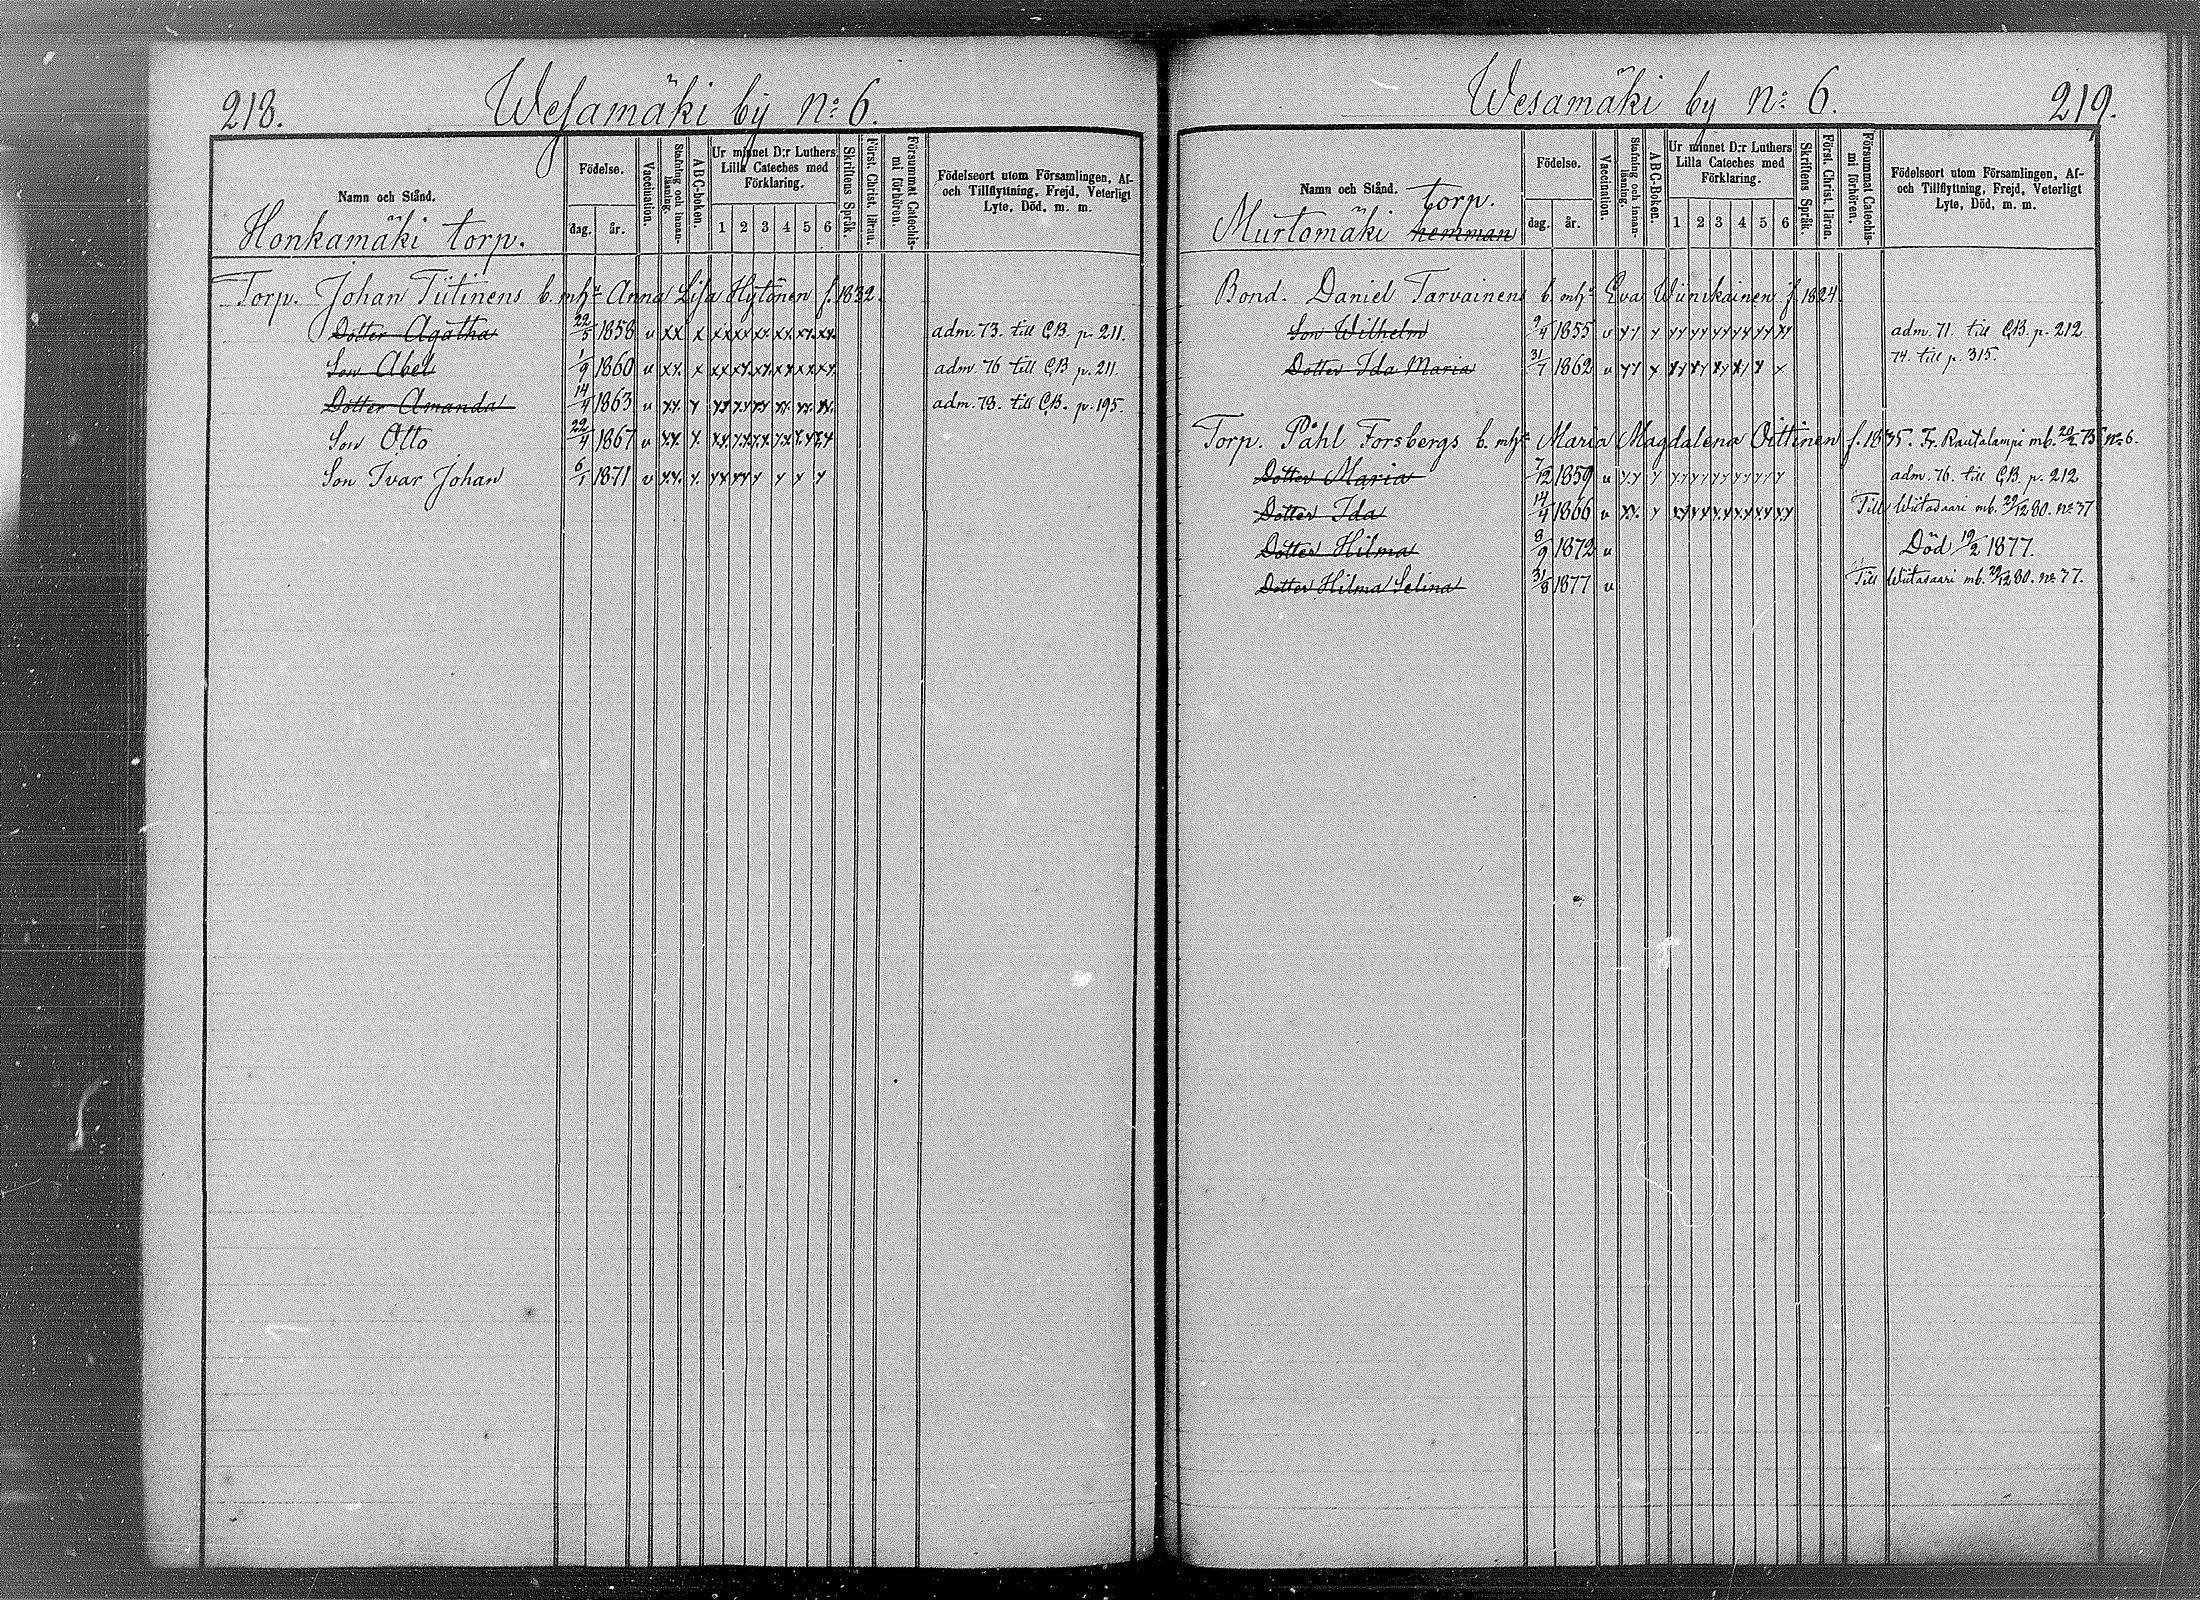 218.
Wesamäki by No 6.
Namn och Stånd.
Födelse.
dag.
år.
Vaccination.
Stafning och innan-läsning.
ABC-boken.
Ur minnet D:r Luthers Lilla Cateches med Förklaring.
1 2 3 4 5 6
Skriftens Språk.
Först. Christ. läran.
Försummat Catechis-mi förhören.
Födelseort utom Församlingen, Af- och Tillflyttning, Frejd, Veterligt Lyte, Död, m. m.
Honkamäki torp.
Torp. Johan Tiitinens b. m. h:u Anna Lisa Hytönen f. 1832.
Dotter Agatha 22/5 1858 v xx x xx xx xx xx xx xx adm. 73. till C.B. p. 211.
Son Abel 1/9 1860 v xx x xx xx xx xx xx xx adm. 76 till C.B p. 211.
Dotter Amanda 14/4 1863 v xx x xx xx xx xx xx xx adm. 78. till C.B. p. 195.
Son Otto 22/4 1867 v xx x xx xx xx xx xx xx
Son Ivar Johan 6/1 1871 v xx x xx xx x x x x
Wesamäki by No 6.
219.
Namn och Stånd.
Födelse.
dag.
år.
Vaccination.
Stafning och innan-läsning.
ABC-Boken.
Ur minnet D:r Luthers Lilla Cateches med Förklaring.
1 2 3 4 5 6
Skriftens Språk.
Först. Christ. läran.
Försummat Catechis-mi förhören.
Födelseort utom Församlingen, Af- och Tillflyttning, Frejd, Veterligt Lyte, Död, m. m.
torp.
Murtomäki hemman
Bond. Daniel Tarvainens b. m. h:u Eva Wiinikainen f. 1824.
Son Wilhelm 9/4 1855 v xx x xx xx xx xx xx xx adm. 71. till C.B. p. 212
Dotter Ida Maria 31/7 1862 v xx x xx xx xx xx x x 74. till p. 315.
Torp. Påhl Forsbergs b. m. h:u Maria Magdalena Oittinen f. 1835. Fr. Rautalampi mb. 20/2 75 No 6.
Dotter Maria 7/12 1859 v xx x xx xx xx xx xx x adm. 76. till C.B. p. 212
Dotter Ida 14/4 1866 v xx x xx xx xx xx xx xx Till Wiitasaari mb. 29/12 80. No 37
Dotter Hilma 8/9 1872 v Död 19/2 1877.
Dotter Hilma Selina 31/8 1877 v Till Wiitasaari mb. 29/12 80. No 37.